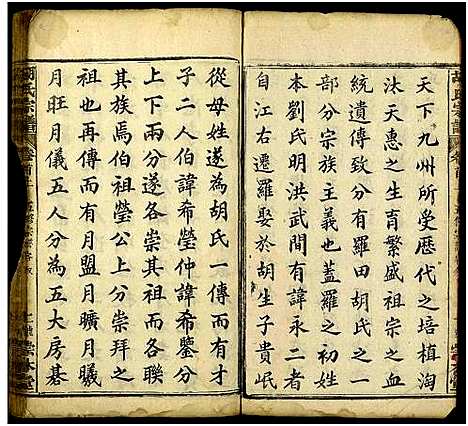 天下九州所受歷代之培植淘
汰天惠之生育繁盛祖宗之血
統遺傳致分有羅田胡氏之一
部分宗族主義也蓋羅之初姓
本劉氏明洪武間永二者
自江右遷羅娶於胡生子貴岷
從母姓遂為胡氏一傳而有才
子二人伯諱希瑩仲諱希鑒分
上下兩分遂各崇其祖各聯
其族焉倘祖瑩公分崇拜之
祖也再傳而有月盟月曠月曦
月旺月儀五人分為五大房碁
胡氏宗譜 卷首